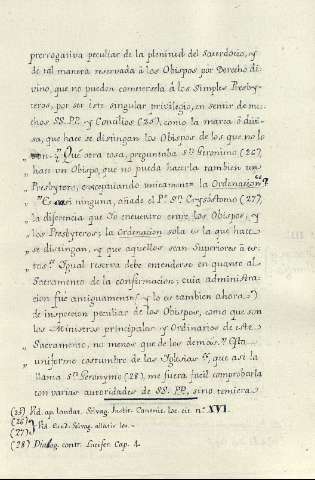 prerrogativa peculiar de la plenitud del Sacerdocio, y
de tal manera reservada à los Obispos por Derecho di-
vino, que no pueden cometersela à los Simples Presby-
teros, por ser este singular privilegio, en sentir de mu-
chos SS. PP. y Concilios (25), como la marca ò divi-
sa, que hace se distingan los Obispos de los que no lo
son. ,, Què otra cosa, preguntaba Sn. Geronimo (26),
,, hace un Obispo, que no pueda hacerla tambien un
,, Presbytero, exceptuando unicamente la Ordenacion?
,, Casi ninguna, añade el Pe. Sn. Crysostomo (27),
,, la diferencia que Yo encuentro entre los Obispos, y
,, los Presbyteros; la Ordenacion sola es la que hace
,, se distingan, y que aquellos sean Superiores à es-
,, tos. Igual reserva debe entenderse en quanto al
Sacramento de la confirmacion; cuia administra-
cion fuè antiguamente (y lo es tambien ahora)
de inspeccion peculiar de los Obispos, como que son
los Ministros principales y Ordinarios de este
Sacramento, no menos que de los demàs. Esta
uniforme costumbre de las Iglesias, que asi la
llama Sn. Geronymo (28), me fuera facil comprobarla
con varias autoridades de SS. PP., sino temiera
(25) Ad. ap. laudat. Selvag. Instit. Canonic. loc. cit. n.º XVI.
(26)
(27) Ad. Eccl. Selvag. allatis loc.
(28) Dialog. contr. Lucifer. Cap. 4.